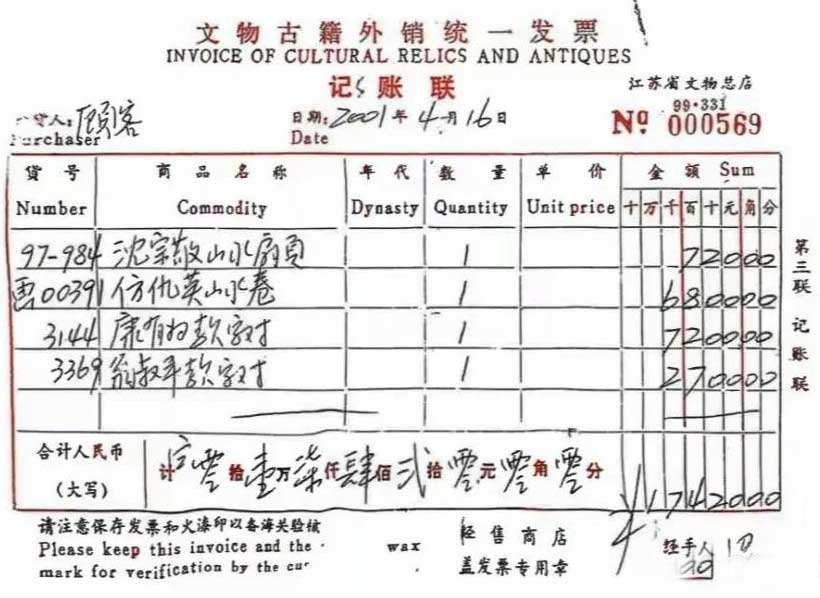 文物古籍外销统一发票
INVOICE OF CULTURAL RELICS AND ANTIQUES
记账联
江苏省文物总店
99·331
货人: 顾客 日期: 2001年4月16日 Nº 000569
Purchaser Date
货号 商品名称 年代 数量 单价 金额 Sum
Number Commodity Dynasty Quantity Unit price 十万千百十元角分
97-984 沈宗敬山水扇页 1 72000
画00391 仿仇英山水卷 1 680000
3144 康有为款字对 1 720000
3369 翁叔平款字对 1 270000
合计人民币
(大写) 计 零拾壹万柒仟肆佰贰拾零元零角零分 ¥1742000
请注意保存发票和火漆印以备海关验核 经售商店 经手人
Please keep this invoice and the wax
mark for verification by the cus 盖发票专用章
第三联 记账联